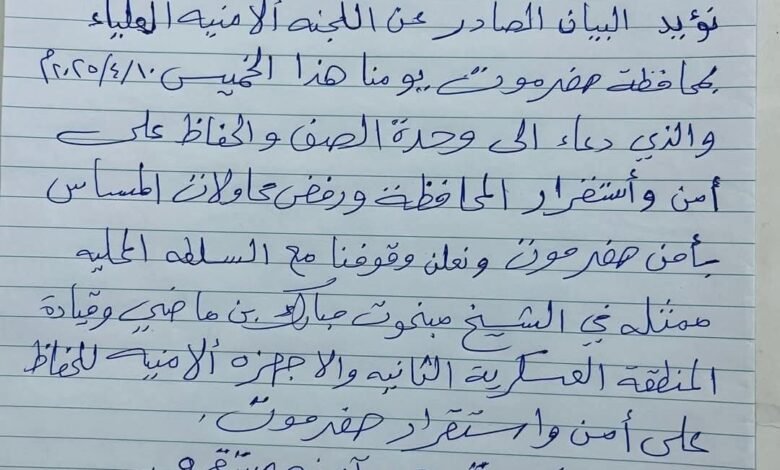 نؤيد البيان الصادر عن اللجنه ألامنيه العلياء
بمحافظة حضرموت يومنا هذا الخميس ٢٠٢٥/٤/١٠م
والذي دعاء الى وحدة الصف والحفاظ على
أمن وأستقرار المحافظة ورفض محاولات المساس
بأمن حضرموت ونعلن وقوفنا مع السلطه المحليه
ممثله في الشيخ مبخوت مبارك بن ماضي وقيادة
المنطقة العسكرية الثانيه والاجهزه ألامنيه للحفاظ
على أمن واستقرار حضرموت.